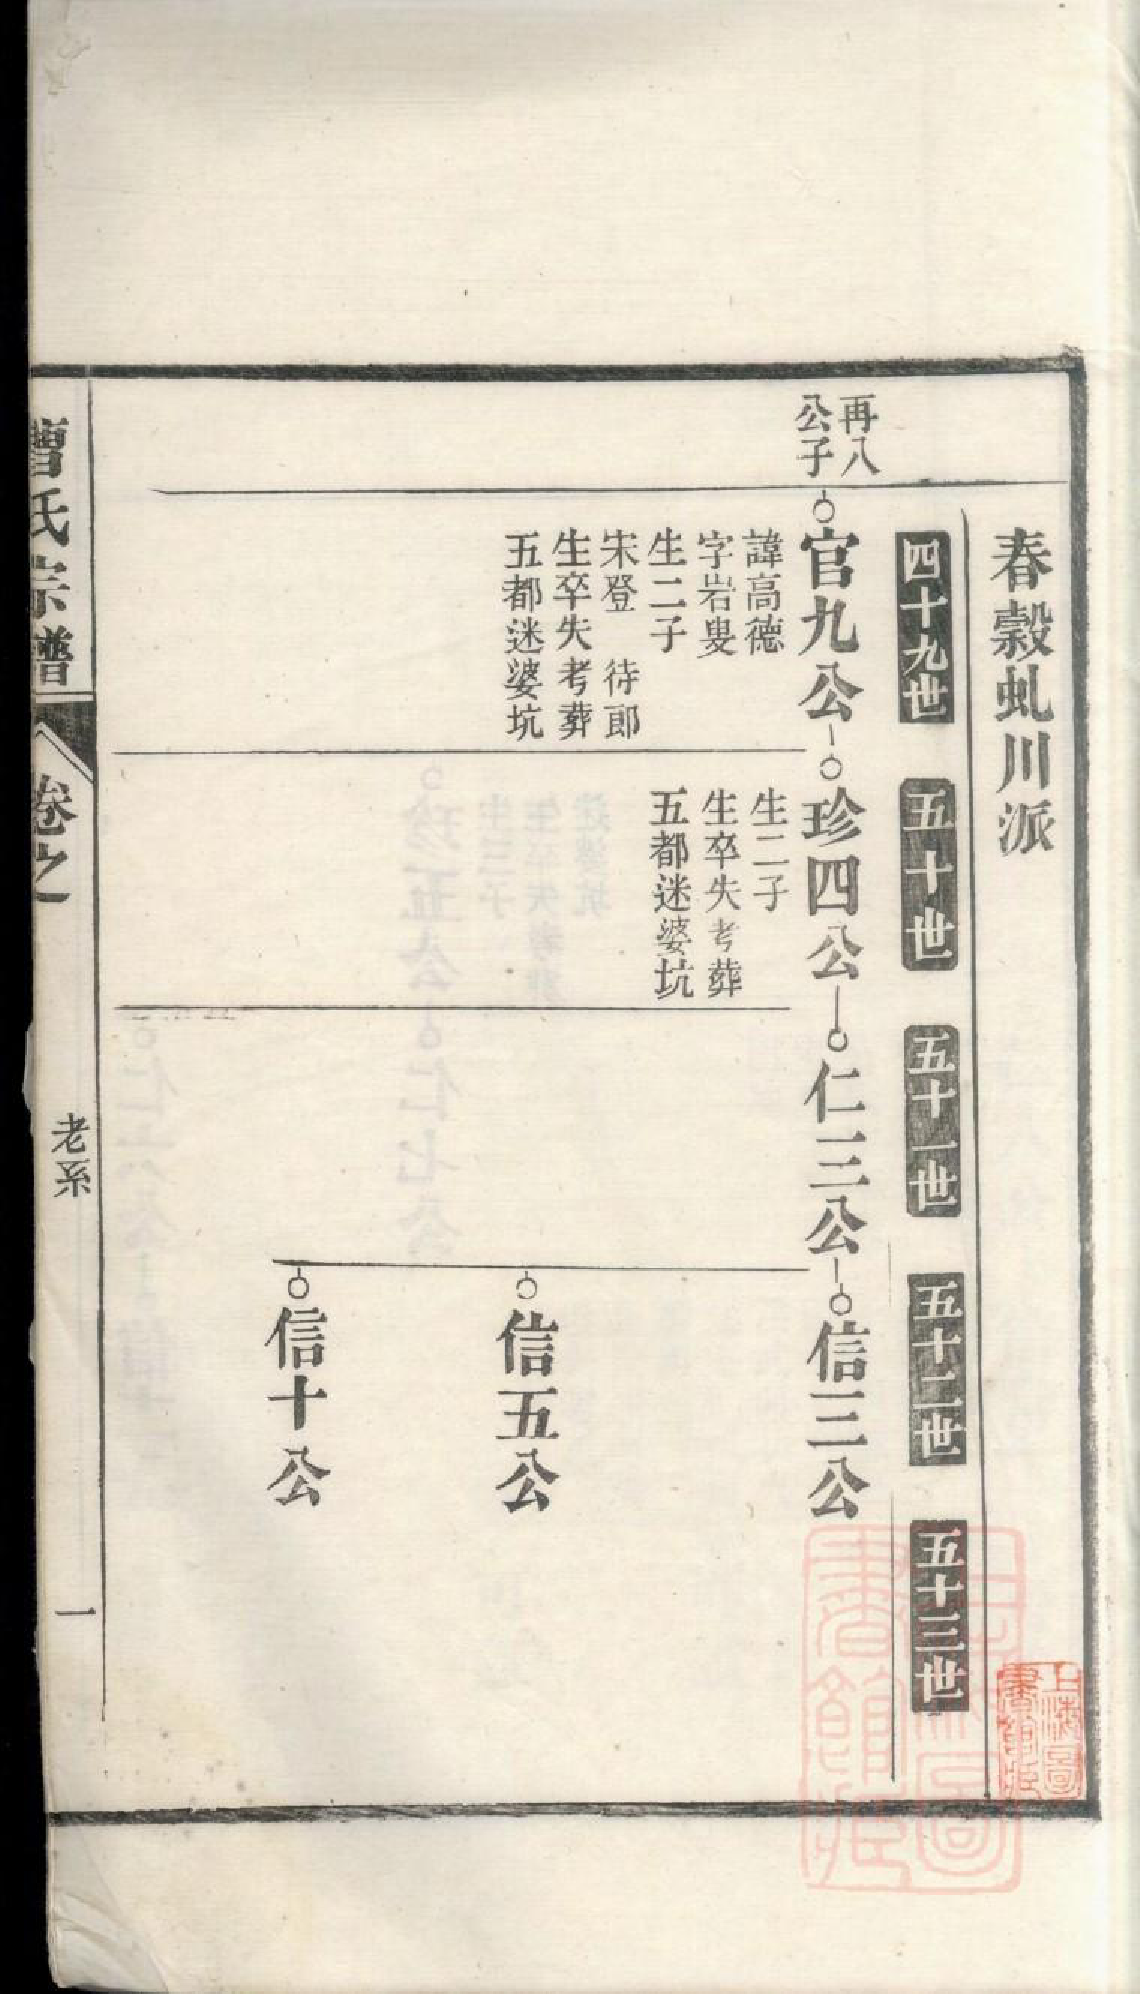 春穀虬川派
四十九世
五十世
五十一世
五十二世
五十三世
再八
公子
官九公
諱高德
字岩叟
生二子
宋登 待郎
生卒失考葬
五都迷婆坑
珍四公
生二子
生卒失考葬
五都迷婆坑
仁三公
信三公
信五公
信十公
曹氏宗譜
卷之
老系
一
上海圖
書館藏